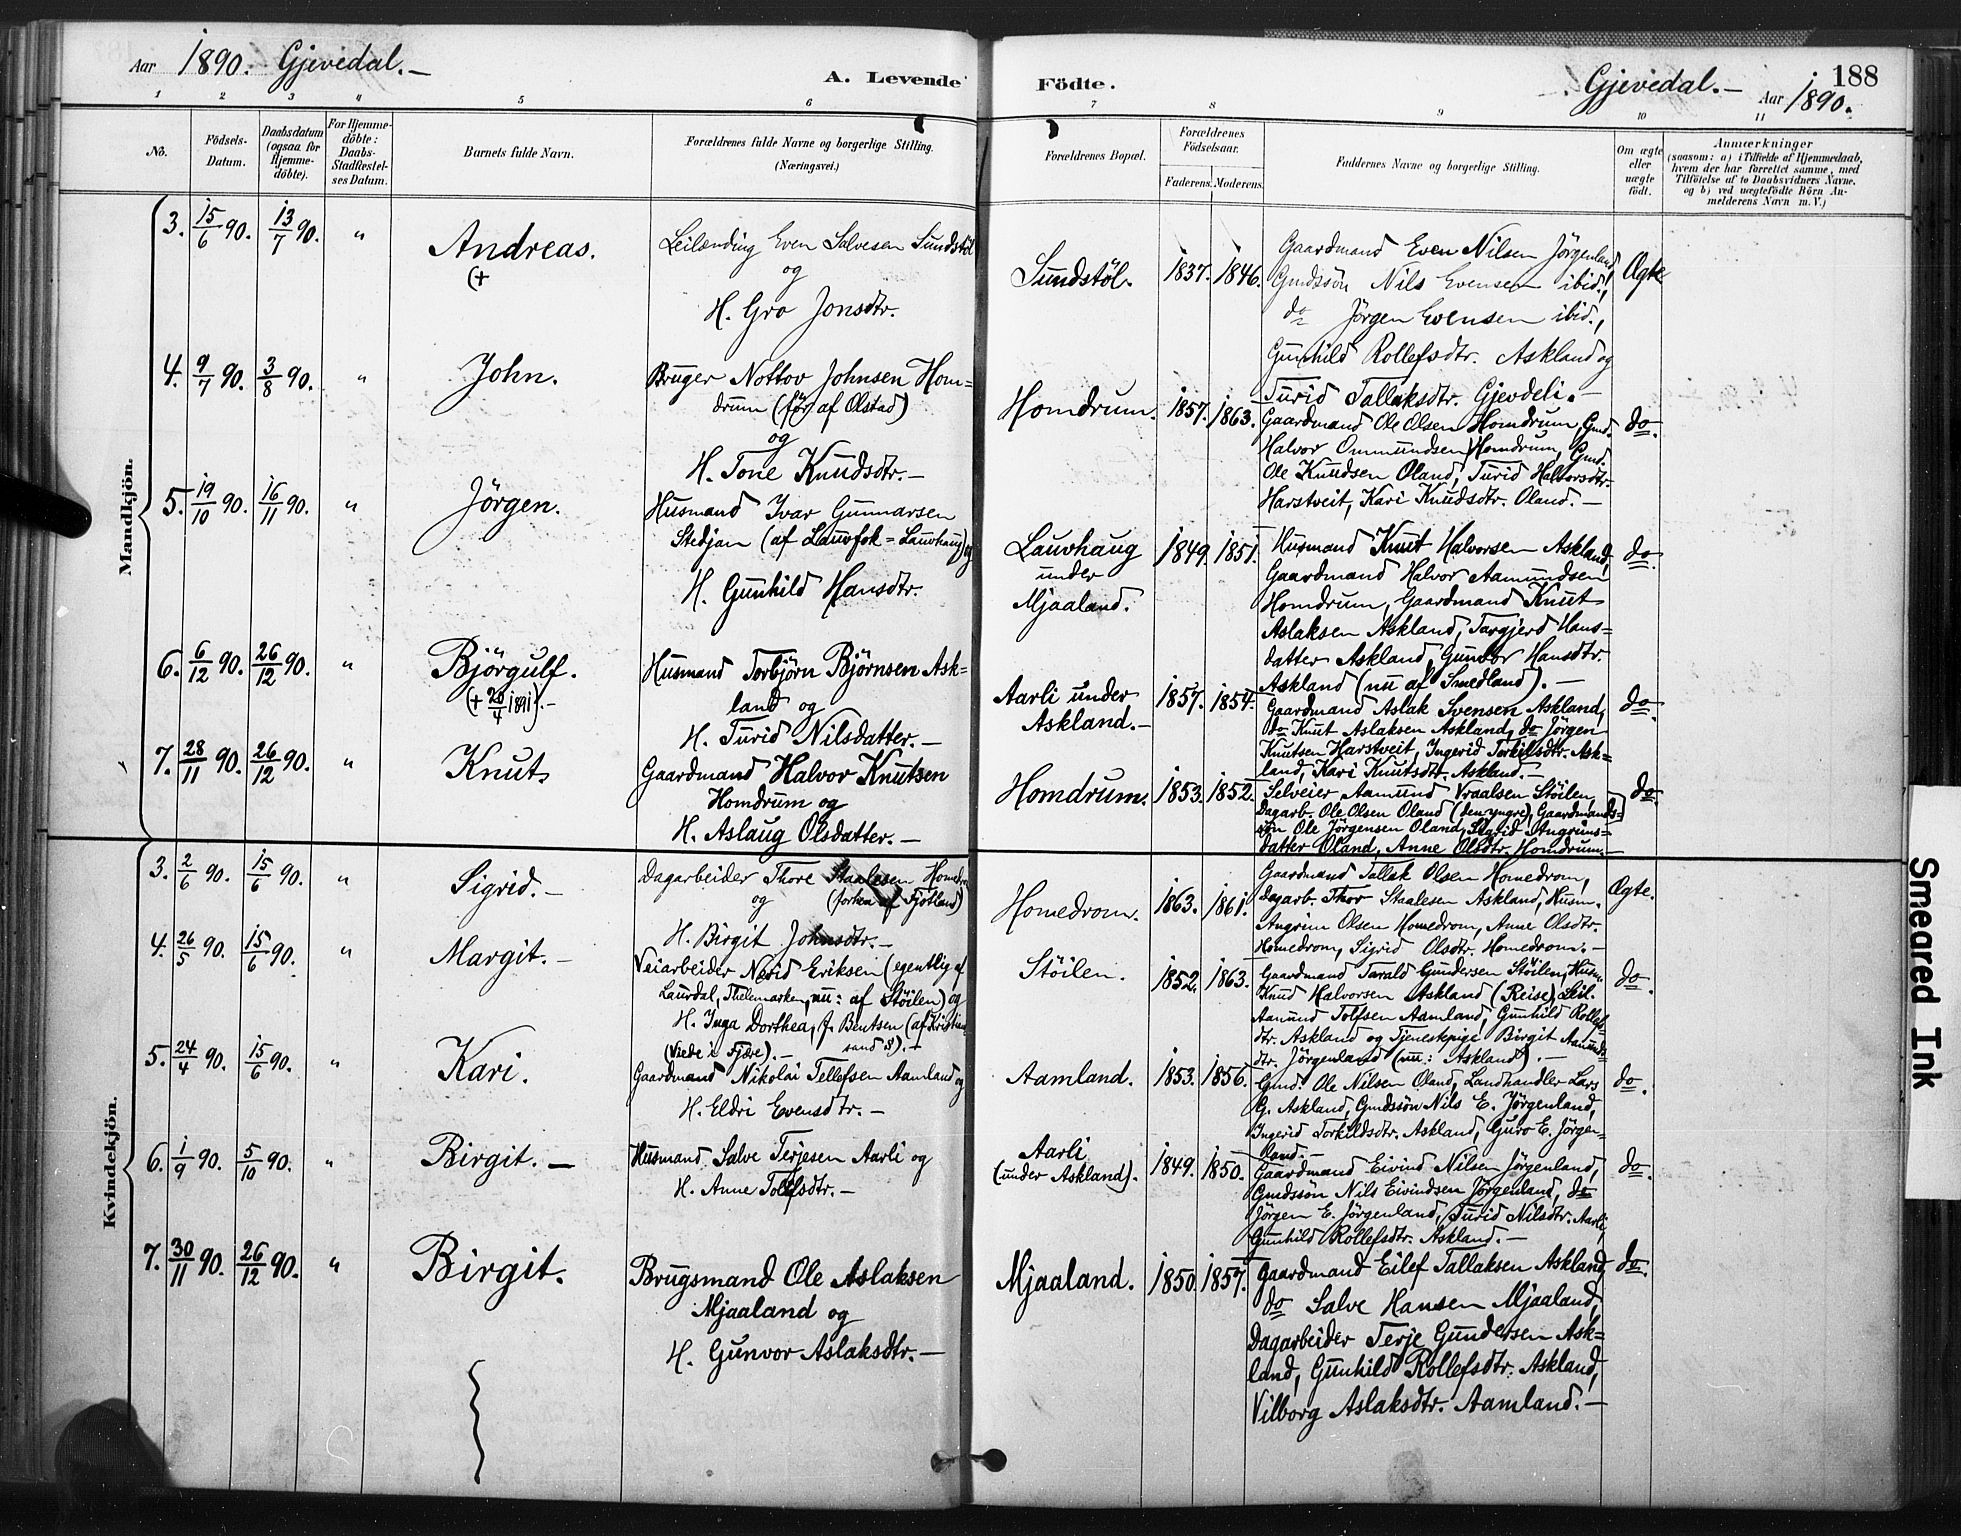 Aar 1890. Gjevedal.—
A. Levende
Födte.
Gjevedal.—
Aar 1890.
188
1 2 3 4 5 6 7 8 9 10 11
No.
Födsels-
Datum.
Daabsdatum
(ogsaa for
Hjemme-
döbte).
For Hjemme-
döbte:
Daabs-
Stadfæstel-
ses Datum.
Barnets fulde Navn.
Forældrenes fulde Navne og borgerlige Stilling.
(Næringsvei.)
Forældrenes Bopæl.
Forældrenes
Födselsaar.
Faderens. Moderens.
Faddernes Navne og borgerlige Stilling.
Om ægte
eller
uægte
födt.
Anmærkninger
(saasom: a) i Tilfælde af Hjemmedaab,
hvem der har forrettet samme, med
Tilföielse af to Daabsvidners Navne,
og b) ved uægtefödte Börn An-
melderens Navn m. V.)
Mandkjön.
3. 15/6 90. 13/7 90. "
Andreas.
(+
Leilænding Even Salvesen Sundstöl
og
H. Gro Jonsdtr.
Sundstöl. 1837. 1846.
Gaardmand Even Nilsen Jörgenland,
Gmdssön Nils Evensen ibid.,
do Jörgen Evensen ibid.,
Gunhild Rollefsdtr. Askland og
Turid Tallaksdtr. Gjevdeli.—
Ægte
4. 9/7 90. 3/8 90. "
John.
Bruger Nottov Johnsen Hom=
drum (för af Olstad)
og
H. Tone Knudsdtr.—
Homdrum. 1857. 1863.
Gaardmand Ole Olsen Homdrum, Gmd.
Halvor Ommundsen Homdrum, Gmd.
Ole Knudsen Oland, Turid Halvorsdtr.
Harstveit, Kari Knudsdtr. Oland.—
do.
5. 19/10 90. 16/11 90. "
Jörgen.
Husmand Ivar Gunnarsen
Stedjan (af Lauvfok=Lauvhaug) og
H. Gunhild Hansdtr.
Lauvhaug
under
Mjaaland.
1849. 1851.
Husmand Knut Halvorsen Askland,
Gaardmand Halvor Aamundsen
Homdrum, Gaardmand Knut
Aslaksen Askland, Targjerd Hans=
datter Askland, Gunvor Hansdtr.
Askland (nu af Smedland).—
do.
6. 6/12 90. 26/12 90. "
Björgulf.
(+ 20/4 1891).—
Husmand Torbjörn Björnsen Ask=
land og
H. Turid Nilsdatter.—
Aarli under
Askland.—
1857. 1854.
Gaardmand Aslak Svensen Askland,
do Knut Aslaksen Askland, do Jörgen
Knutsen Harstveit, Ingerid Torkilsdtr. Ask=
land, Kari Knutsdtr. Askland.—
do.
7. 28/11 90. 26/12 90. "
Knut
Gaardmand Halvor Knutsen
Homdrum og
H. Aslaug Olsdatter.—
Homdrum. 1853. 1852.
Selveier Aamund Vraalsen Stöilen,
Dagarb. Ole Olsen Oland (den yngre), Gaardmands=
sön Ole Jörgensen Oland, Sigrid Angrims=
datter Oland, Anne Olsdtr. Homdrum.—
do.
Kvindekjön.
3. 2/6 90. 15/6 90. "
Sigrid.—
Dagarbeider Thore Staalesen Homedrom
og (forhen af Fjotland)
H. Birgit Johnsdtr.—
Homedrom. 1863. 1861.
Gaardmand Tallak Olsen Homedrom,
Dagarb. Thor Staalesen Askland, Husm.
Angrim Olsen Homedrom, Anne Olsdtr.
Homedrom, Sigrid Olsdtr. Homedrom.—
Ægte.
4. 26/5 90. 15/6 90. "
Margit.—
Veiarbeider Nerid Eriksen (egentlig af
Laurdal, Thelemarken, nu: af Stöilen) og
H. Inga Dorthea, J. Bentsen (af Kristian
sand s).—
(Viede i Fjære).—
Stöilen. 1852. 1863.
Gaardmand Tarald Gundersen Stöilen, Husm.
Knud Halvorsen Askland (Reise), Leil.
Aanund Tolfsen Aamland, Gunhild Rollefs=
dtr. Askland og Tjenestepige Birgit Aamunds=
dtr. Jörgenland (nu: Askland).—
do.
5. 24/4 90. 15/6 90. "
Kari.
Gaardmand Nikolai Tellefsen Aamland og
H. Eldri Evensdtr.—
Aamland. 1853. 1856.
Gmd. Ole Nilsen Oland, Landhandler Lars
G. Askland, Gmdssön Nils E. Jörgenland,
Ingerid Torkildsdtr. Askland, Guro E. Jörgen=
land.—
do.
6. 1/9 90. 5/10 90. "
Birgit.—
Husmand Salve Terjesen Aarli og
H. Anne Tolfsdtr.—
Aarli
(under Askland).
1849. 1850.
Gaardmand Eivind Nilsen Jörgenland,
Gmdssön Nils Eivindsen Jörgenland, do
Jörgen E. Jörgenland, Turid Nilsdtr. Aarli,
Gunhild Rollefsdtr. Askland.—
do.
7. 30/11 90. 26/12 90. "
Birgit.
Brugsmand Ole Aslaksen
Mjaaland og
H. Gunvor Aslaksdtr.—
Mjaaland. 1850. 1857.
Gaardmand Eilef Tallaksen Askland,
do Salve Hansen Mjaaland,
Dagarbeider Terje Gundersen Ask=
land, Gunhild Rollefsdtr. Askland,
Vilborg Aslaksdtr. Aamland.—
do.
Smeared Ink